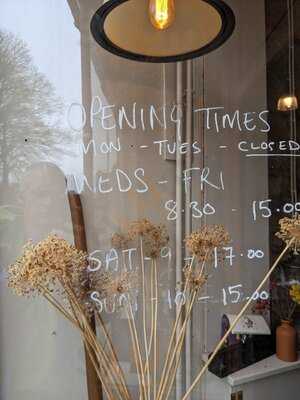 OPENING TIMES
MON - TUES - CLOSED
WEDS - FRI
8.30 - 15.00
SAT - 9 - 17.00
SUN - 10 - 15.00